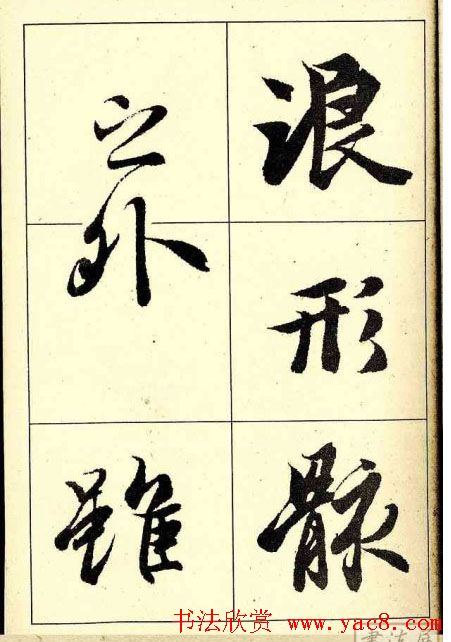 浪形骸
之外雖
书法欣赏 www.yac8.com